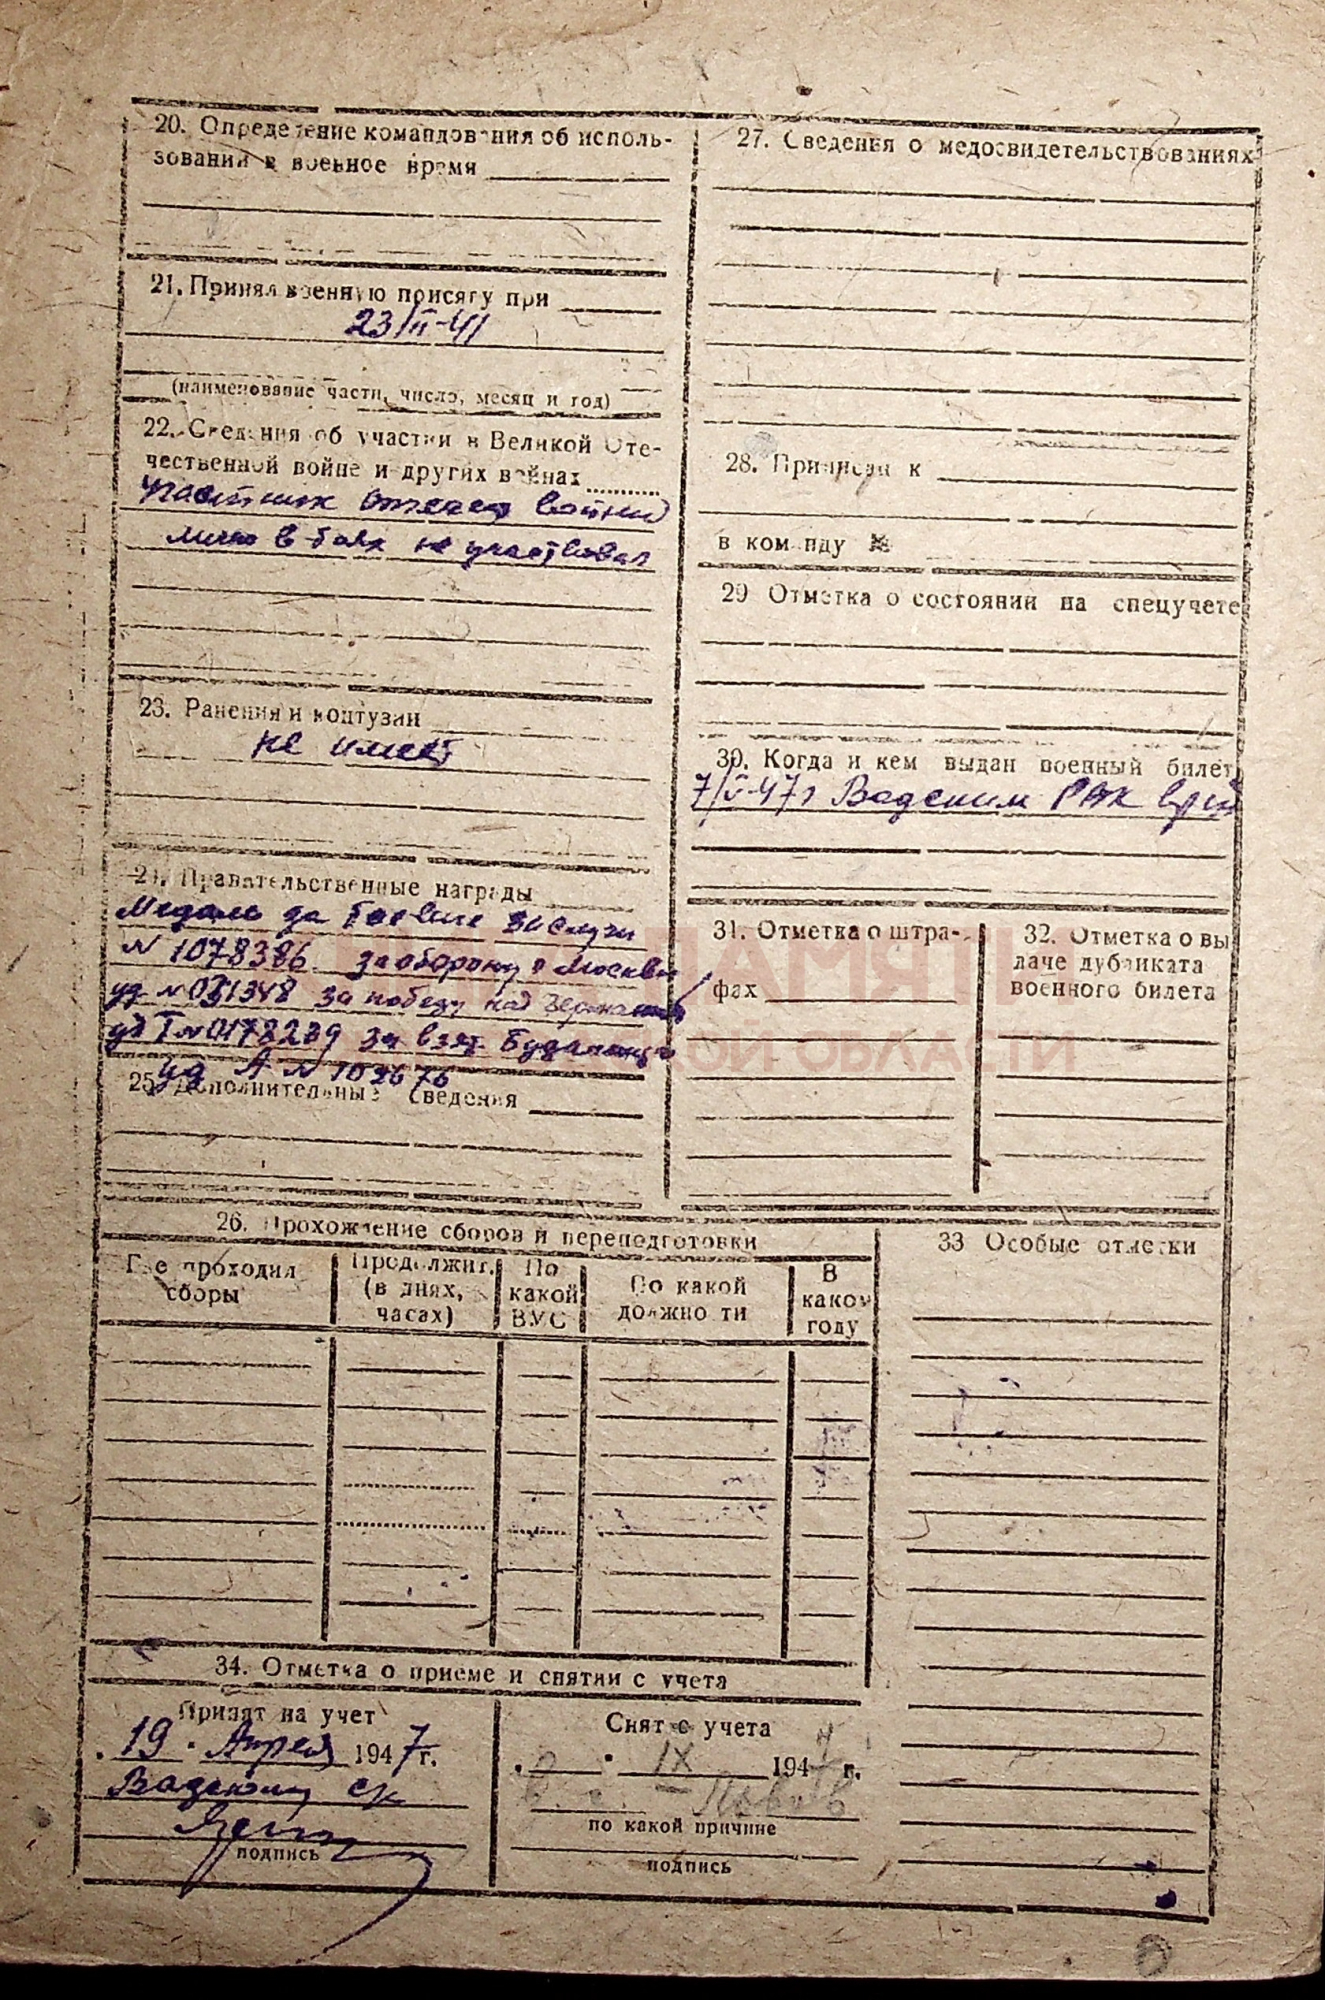 20. Определение командования об исполь-
зовании в военное время
21. Принял военную присягу при
23/II-41
(наименование части, число, месяц и год)
22. Сведения об участии в Великой Оте-
чественной войне и других войнах
Участник отечест войны
лично в боях не участвовал
23. Ранения и контузии
не имеет
24. Правительственные награды
Медаль за боевые заслуги
N 1078386 за оборону г Москвы
уд N 031348 за победу над Германией
уд Т N 0178239 за взят. Будапешта
уд А N 102676
25. Дополнительные сведения
27. Сведения о медосвидетельствованиях
28. Приписан к
в команду №
29 Отметка о состоянии на спецучете
30. Когда и кем выдан военный билет
7/V-47г Вадским РВК
31. Отметка о штра-
фах
32. Отметка о вы
даче дубликата
военного билета
ПАМЯТИ
ОБЛАСТИ
26. Прохождение сборов и переподготовки
Где проходил
сборы
Продолжит.
(в днях,
часах)
По
какой
ВУС
По какой
должности
В
каком
году
33 Особые отметки
34. Отметка о приеме и снятии с учета
Принят на учет
19 Апреля 1947г.
Вадским
подпись
Снят с учета
IX 1947 г.
по какой причине
подпись